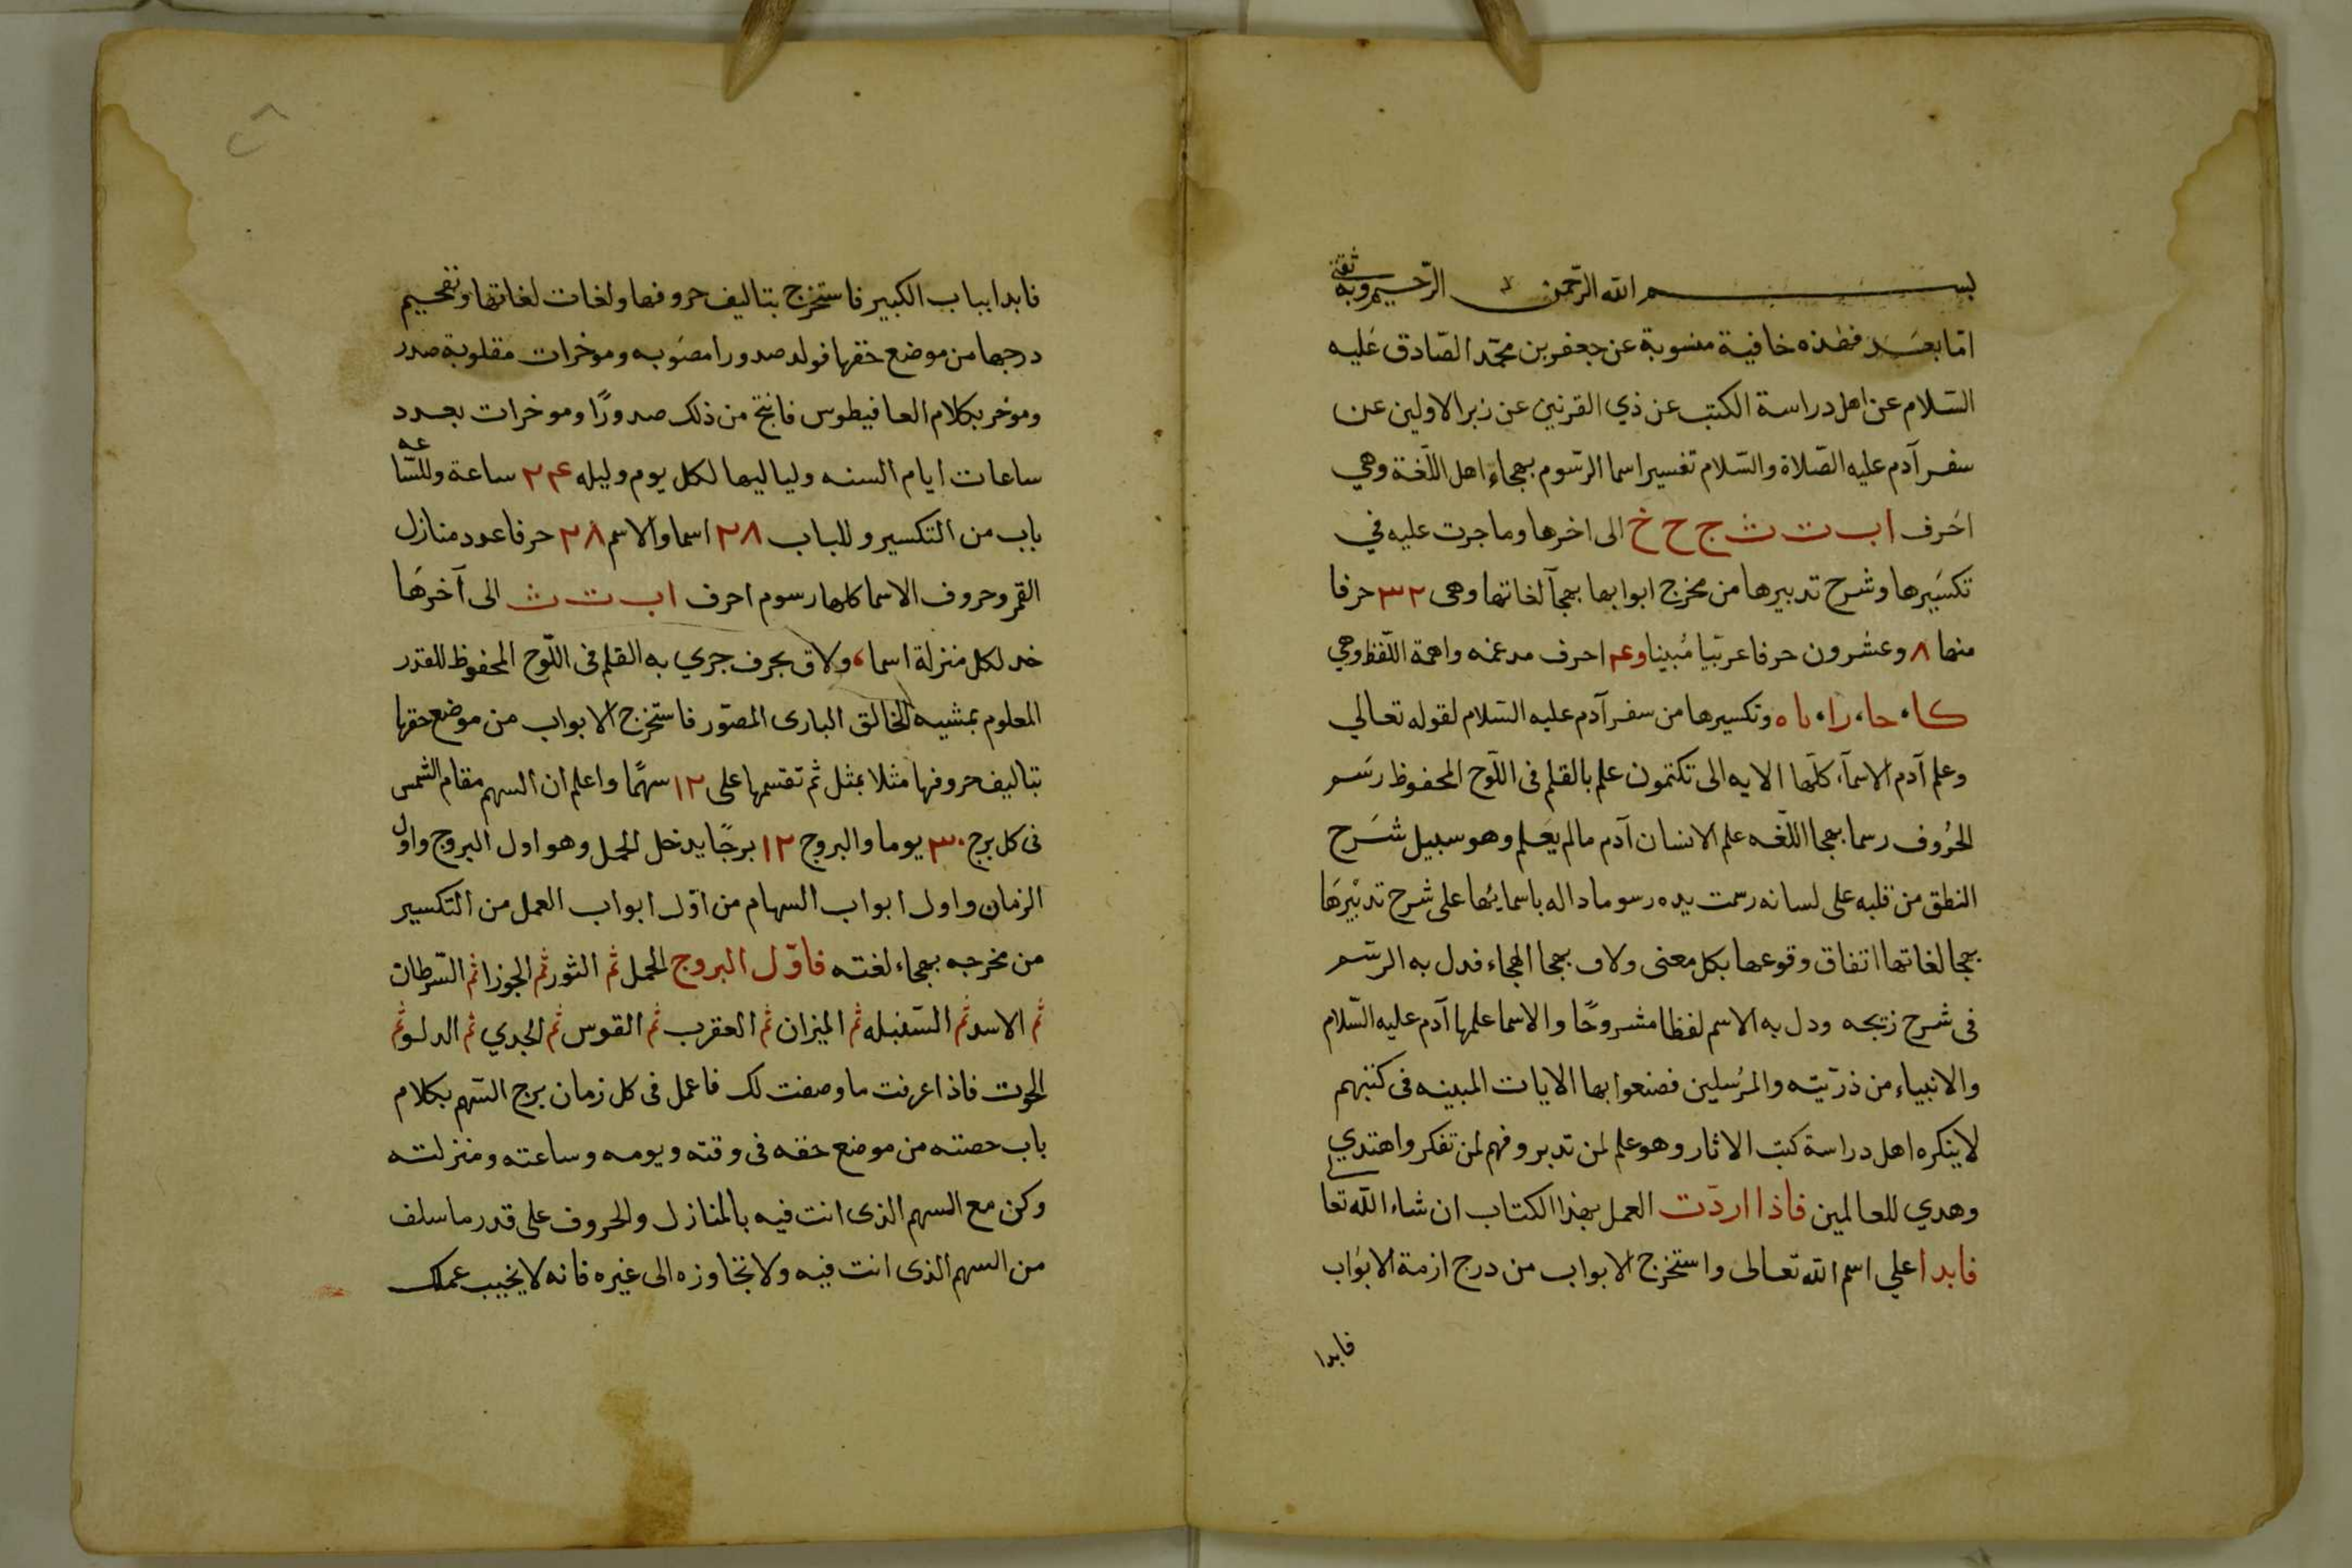 بسم الله الرحمن الرحيم وبه ثقتي
امّا بعد فهذه خافية منسوبة عن جعفر بن محمّد الصّادق عليه
السّلام عن اهل دراسة الكتب عن ذي القرنين عن زبر الاولين عن
سفر آدم عليه الصّلاة والسّلام تفسير اسما الرسّوم بهجاء اهل اللّغة وهي
احرف ا ب ت ث ج ح خ الى اخرها وما جرت عليه في
تكسيرها وشرح تدبيرها من مخرج ابوابها بهجآ لغاتها وهى ٣٢ حرفا
منها ٨ وعشرون حرفا عربيّا مُبينا و۴ احرف مدغمه واهمة اللّفظ وهي
كا، حا، را، ناه وتكسيرها من سفر آدم عليه السّلام لقوله تعالي
وعلم آدم الاسمآء كلّها الايه الى تكتمون علم بالقلم فى اللّوح المحفوظ رسم
الحُروف رسما بهجا اللّغه علم الانسان آدم مالم يعلم وهو سبيل شرح
النطق من قلبه على لسانه رسمت يده رسوما داله باسمايها على شرح تدبيرها
بهجا لغاتها اتفاق وقوعها بكل معنى ولاف بهجا الهجاء فدل به الرسّم
فى شرح زيجه ودل به الاسم لفظا مشروحًا والاسما علمها آدم عليه السّلام
والانبياء من ذرّيته والمرُسلين فصنعوا بها الايات المبينه فى كتبهم
لا ينكره اهل دراسة كتب الاثار وهو علم لمن تدبر وفهم لمن تفكر واهتدي
وهدي للعالمين فاذا اردت العمل بهذا الكتاب ان شاء الله تعا
فابدا علي اسم الله تعالى واستخرج الابواب من درج ازمة الابواب
فابدا
فابدا بباب الكبير فاستخرج بتاليف حروفها ولغات لغاتها وتفحيم
درجها من موضع حقها فولد صدورا مصوبه وموخرات مقلوبة صدر
وموخر بكلام العافيطوس فانتج من ذلك صدورًا وموخرات بعدد
ساعات ايام السنه ولياليها لكل يوم وليله ٢۴ ساعة وللسّاعه
باب من التكسير وللباب ٢٨ اسما والاسم ٢٨ حرفا عدد منازل
القمر وحروف الاسما كلها رسوم احرف ا ب ت ث الى آخرها
خد لكل منزلة اسما، ولاق بحرف جري به القلم فى اللّوح المحفوظ للقدر
المعلوم بمشيه الخالق البارى المصّور فاستخرج الابواب من موضع حقها
بتاليف حروفها مثلا بمثل ثم تقسمها على ١٢ سهمًا واعلم ان السهم مقام الشمس
فى كل برج ٣٠ يوما والبروج ١٢ برجًا يدخل الحمل وهو اول البروج واول
الزمان واول ابواب السهام من اوّل ابواب العمل من التكسير
من مخرجه بهجاء لغته فاوّل البروج الحمل ثم الثور ثم الجوزا ثم السّرطان
ثم الاسد ثم السّنبله ثم الميزان ثم العقرب ثم القوس ثم الجدي ثم الدلو ثم
الحوت فاذا عرفت ما وصفت لك فاعمل فى كل زمان برج السّهم بكلام
باب حصته من موضع حقه فى وقته ويومه وساعته ومنزلته
وكن مع السهم الذى انت فيه بالمنازل والحروف على قدر ما سلف
من السهم الذى انت فيه ولا تتجاوزه الى غيره فانه لا يخيب عملك